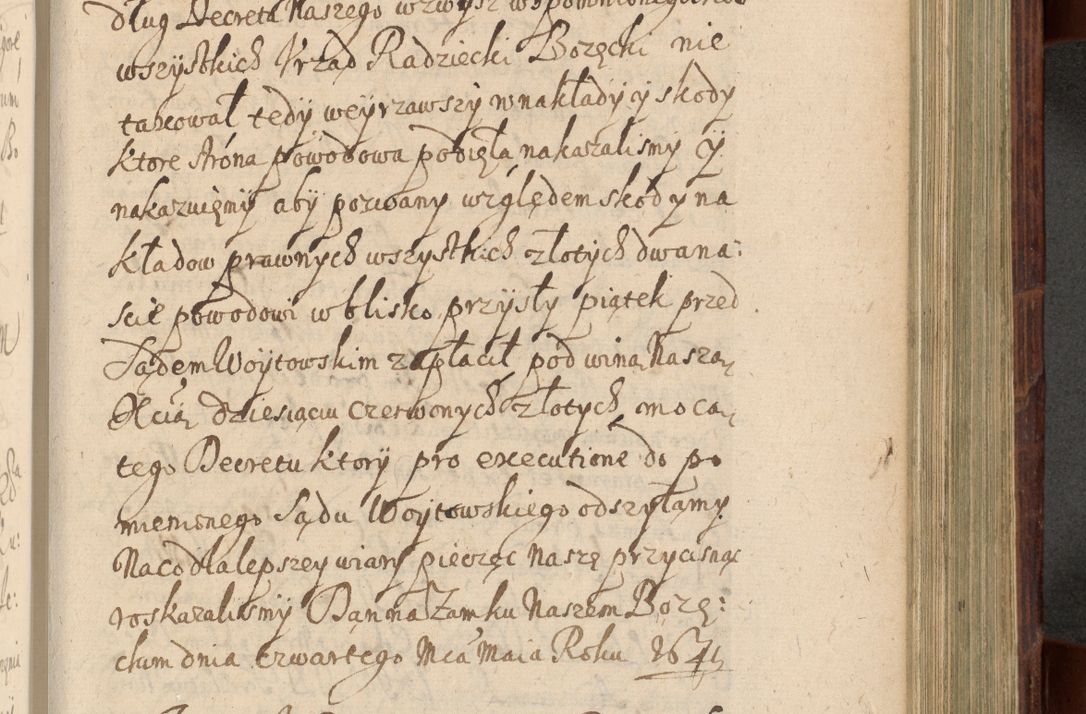 dług Decretu Naszego wzwysz wspomnionego
wszystkich Vrząd Radziecki Bozęcki nie
taxował tedy weyrzawszy w nakłady y skody
ktore stróna powodowa podięła nakazalismy y
nakazuięmy aby pozwany względem skod y na
kładow prawnych wszystkich złotych dwana:
scie powodowi w blisko przyszły piątek przed
Sądem Woytowskim zapłacił pod winą Naszą
dziesiąciu czerwonych złotych mocą
tego Decretu ktory pro executione do po
mienionego Sądu Woytowskiego odszyłamy
Na co dla lepszey wiary pieczęc Naszę przycisnąc
roskazalismy Dan na Zamku Naszem Bozę:
ckim dnia czwartego Mca Maia Roku 1641